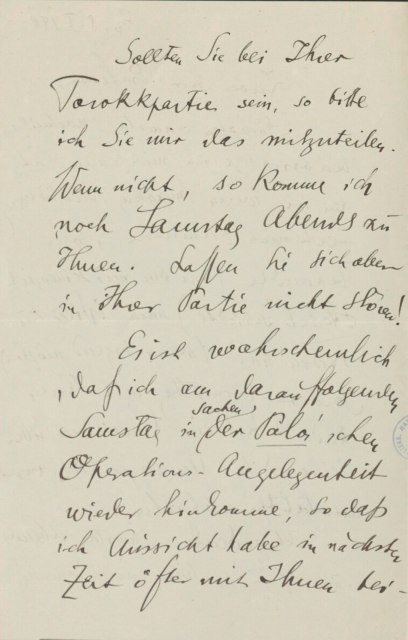 Sollten Sie bei Ihrer
Tarokkpartie sein, so bitte
ich Sie mir das mitzuteilen.
Wenn nicht, so komme ich
noch Samstag Abends zu
Ihnen. Lassen Sie sich aber
in Ihrer Partie nicht stören!
Es ist wahrscheinlich
, daß ich am darauffolgenden
Sachen
Samstag in der Palós'schen
Operations-Angelegenheit
wieder hinkomme, so daß
ich Aussicht habe in nächster
Zeit öfter mit Ihnen bei-